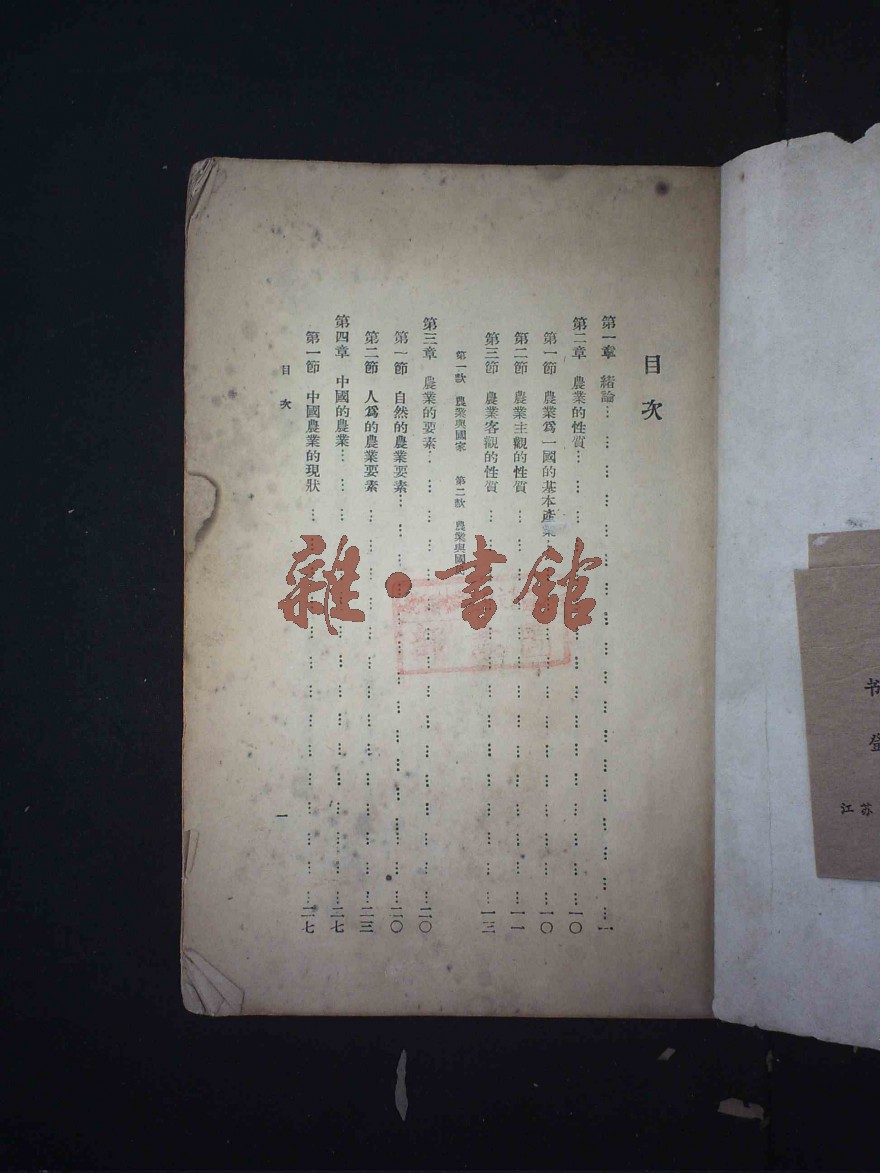 目次
第一章 緒論……………………一
第二章 農業的性質……………………一〇
第一節 農業爲一國的基本產業……………………一〇
第二節 農業主觀的性質……………………一一
第三節 農業客觀的性質……………………一三
第一款 農業與國家 第二款 農業與國
第三章 農業的要素……………………二〇
第一節 自然的農業要素……………………二〇
第二節 人爲的農業要素……………………二三
第四章 中國的農業……………………二七
第一節 中國農業的現狀……………………二七
目次
一
雜·書館
书
登
江苏